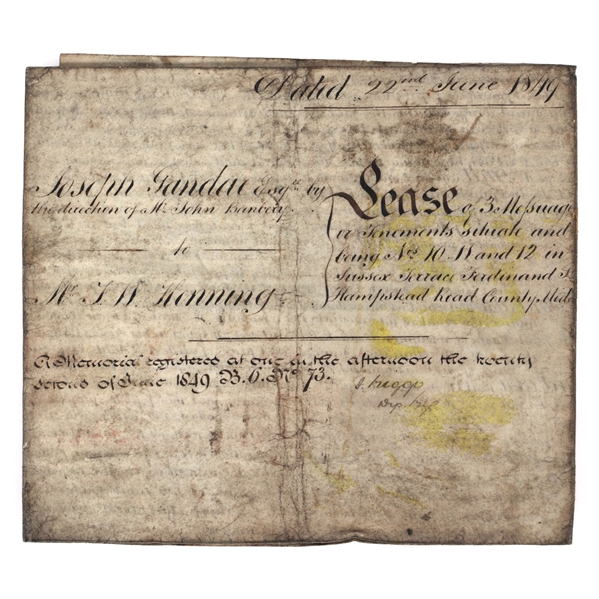 Dated 22nd June 1849
Joseph Gandar Esqre. by
the direction of Mr. John
to
Mr. J. W. Henning
Lease of 3 Messuages
or Tenements situate and
being Nos. 10-11 and 12 in
Sussex Terrace Ferdinand St
Hampstead Road County Midd
A Memorial registered at one in the afternoon the twenty
second of June 1849 B. 6. No. 73.